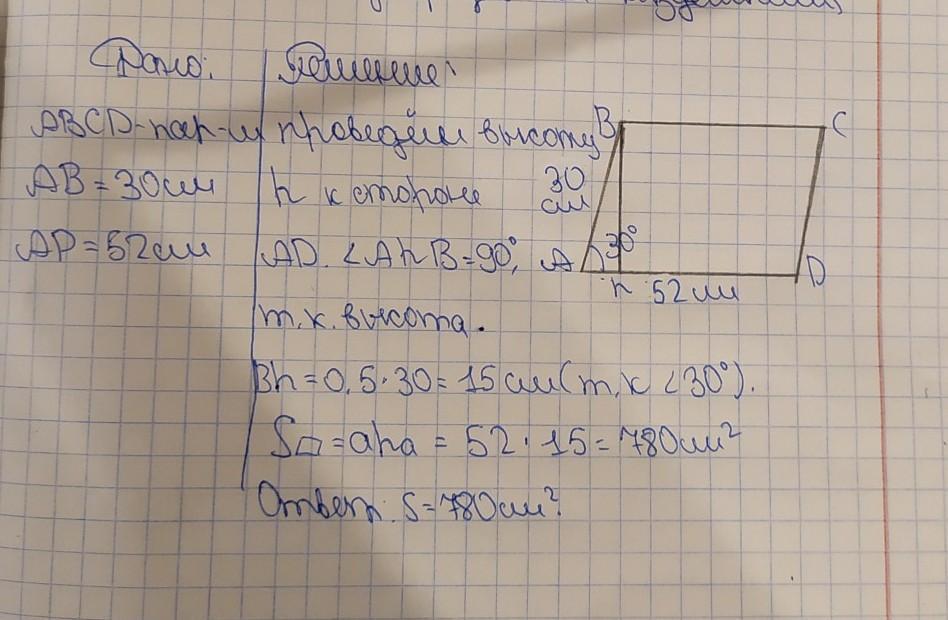 Дано:
ABCD-пар-м
AB = 30см
AD = 52см
Решение:
проведём высоту
h к стороне
AD. <AhB=90°,
т.к. высота.
Bh = 0,5·30 = 15см(т.к <30°).
S▱ = aha = 52·15 = 780см²
Ответ: S=780см²
B
C
30
см
30°
A
D
h
52см